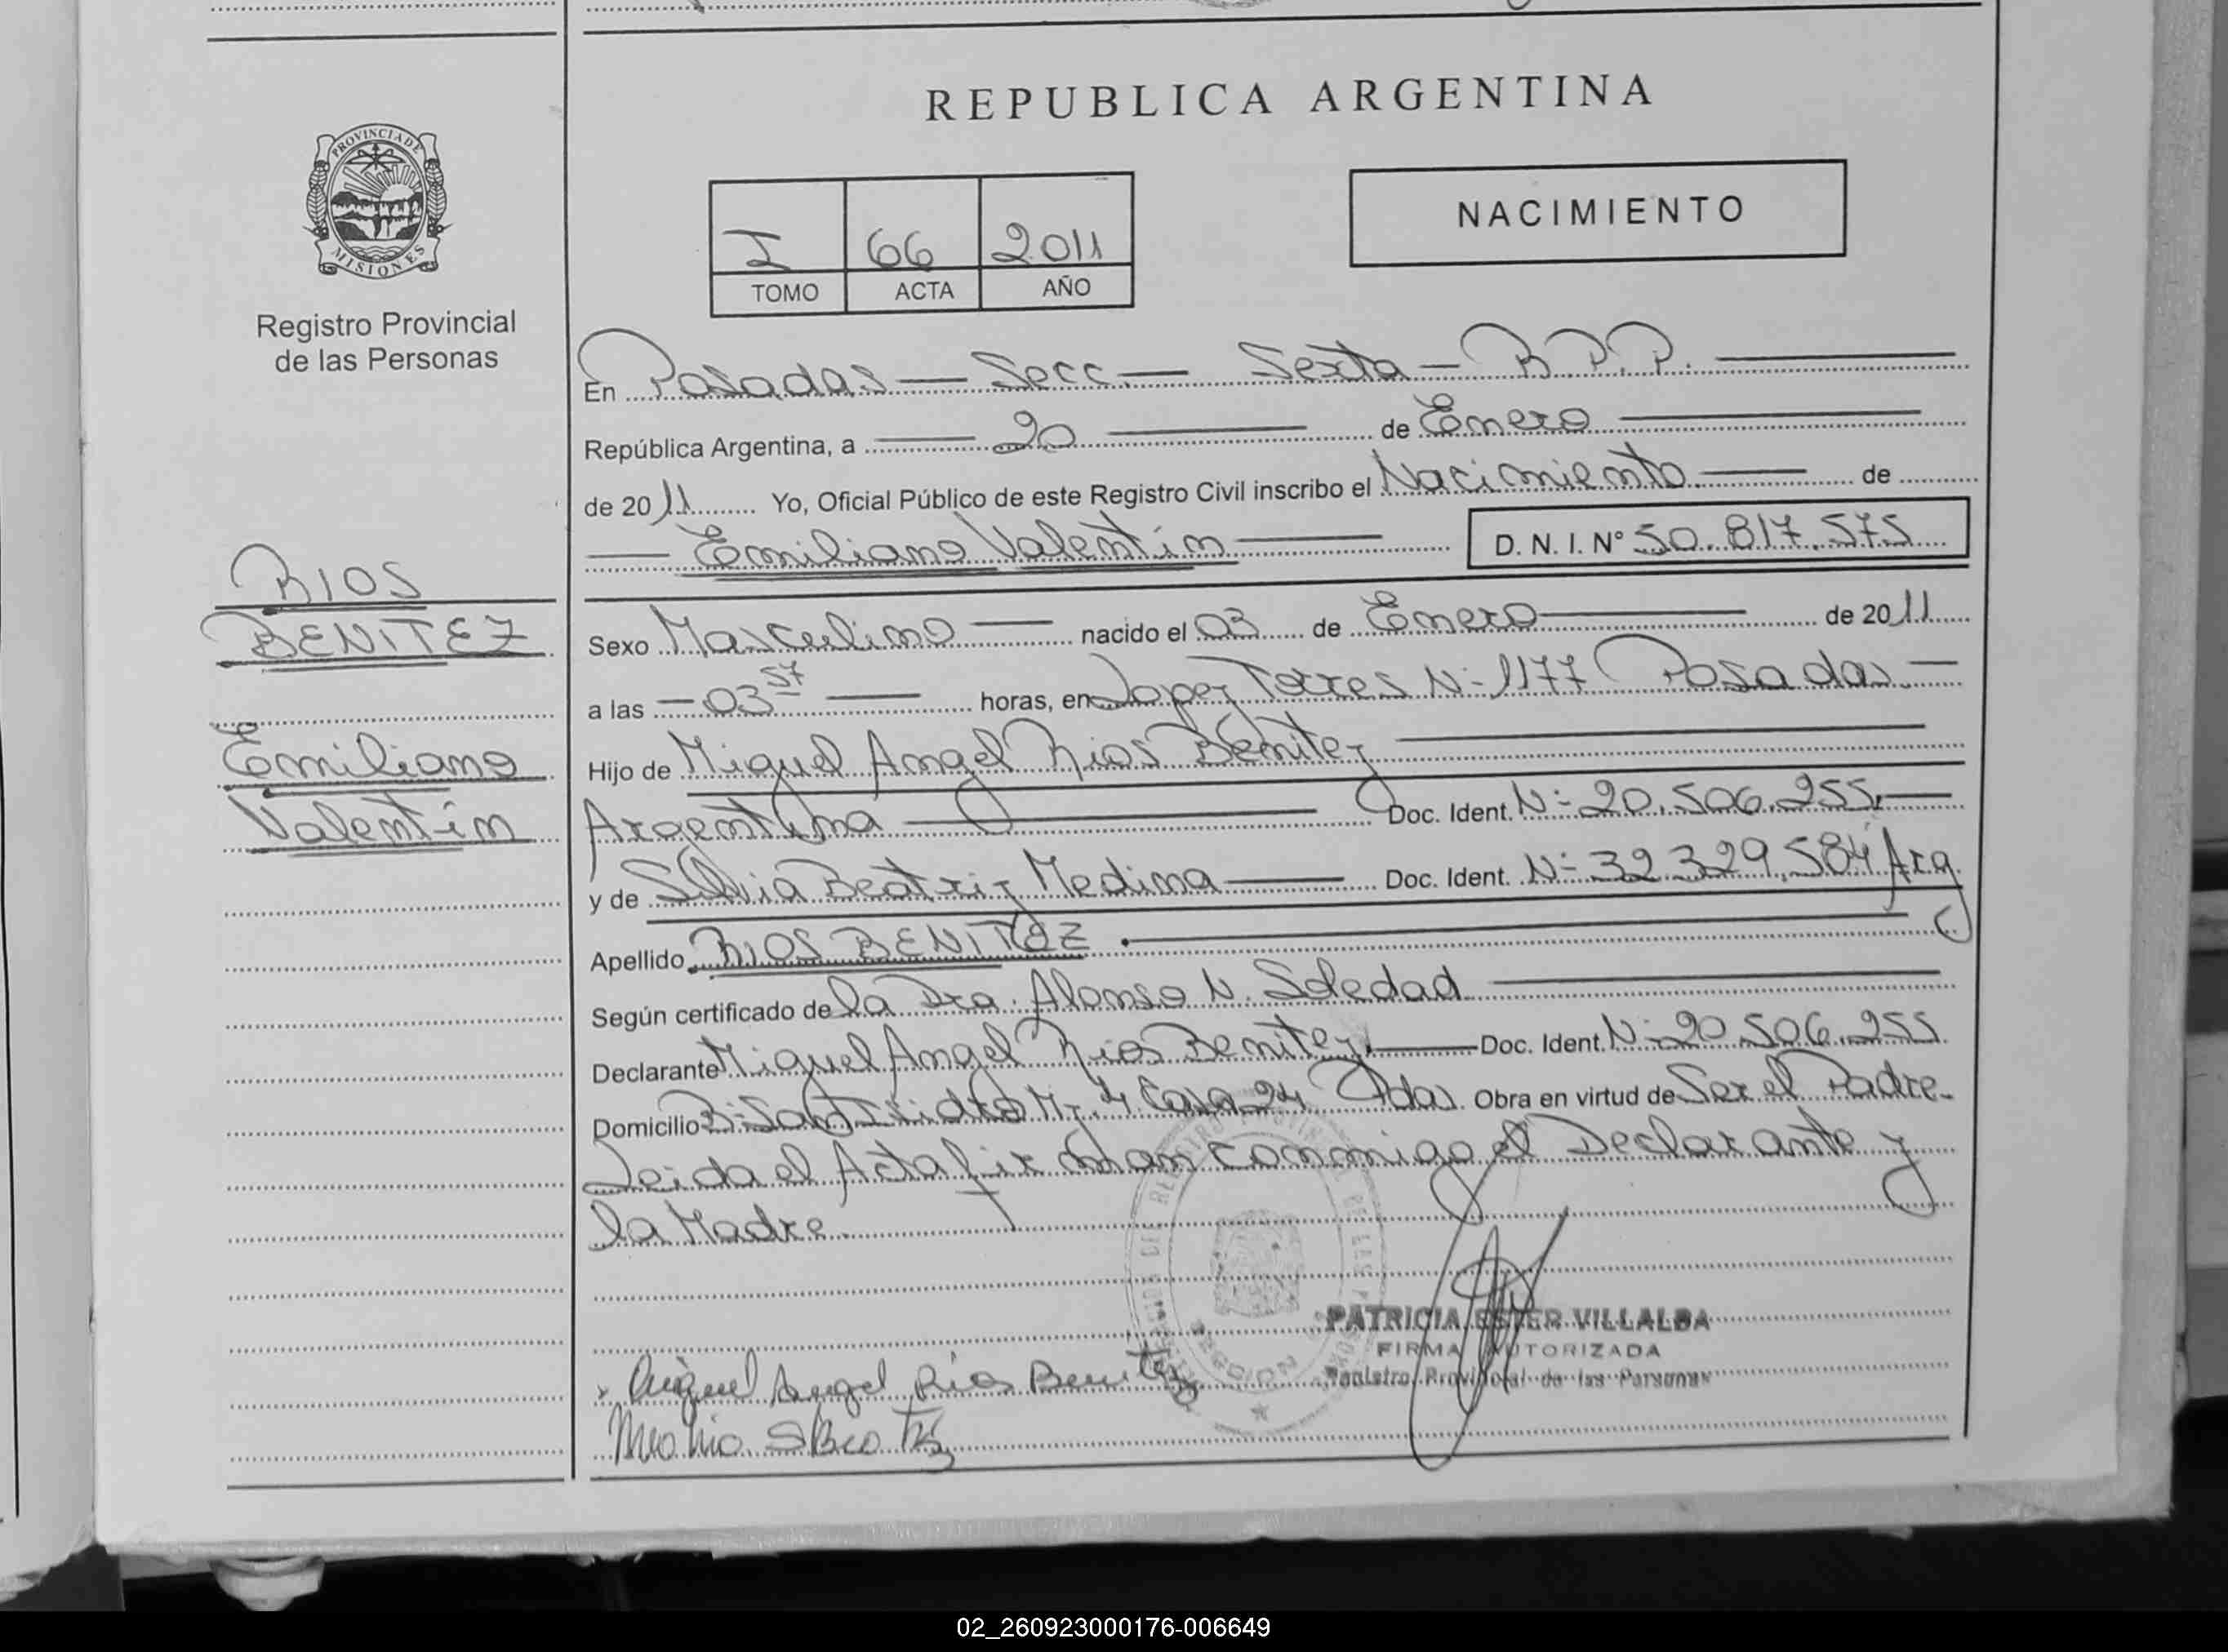 REPUBLICA ARGENTINA
PROVINCIA DE
MISIONES
Registro Provincial
de las Personas
NACIMIENTO
I 66 2011
TOMO ACTA AÑO
En Posadas — Secc. — Sexta — R.P.P.
República Argentina, a 20 de Enero
de 2011 Yo, Oficial Público de este Registro Civil inscribo el Nacimiento de
Emiliano Valentín D. N. I. N° 50.817.575
RIOS
BENITEZ
Emiliano
Valentín
Sexo Masculino nacido el 03 de Enero de 2011
a las 03 57 horas, en Lopez Torres N- 1177 Posadas.
Hijo de Miguel Angel Rios Benitez
Argentina Doc. Ident. N- 20.506.255.
y de Silvia Beatriz Medina Doc. Ident. N- 32.329.584 Arg.
Apellido RIOS BENITEZ.
Según certificado de la Dra. Alonso N. Soledad
Declarante Miguel Angel Rios Benitez. Doc. Ident. N- 20.506.255
Domicilio B- San Isidro Mz 4 Casa 24 Pdas. Obra en virtud de Ser el Padre.
Leida el Acta firman conmigo el Declarante y
la Madre.
PATRICIA ESTER VILLALBA
FIRMA AUTORIZADA
Registro Provincial de las Personas
Miguel Angel Rios Benitez
02_260923000176-006649